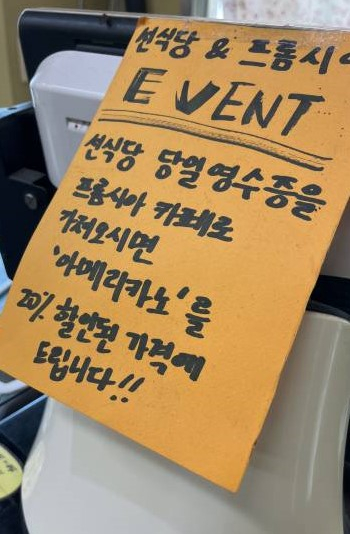 선식당 & 프롬시
EVENT
선식당 당일 영수증을
프롬시아 카페로
가져오시면
'아메리카노'를
20% 할인된 가격에
드립니다!!